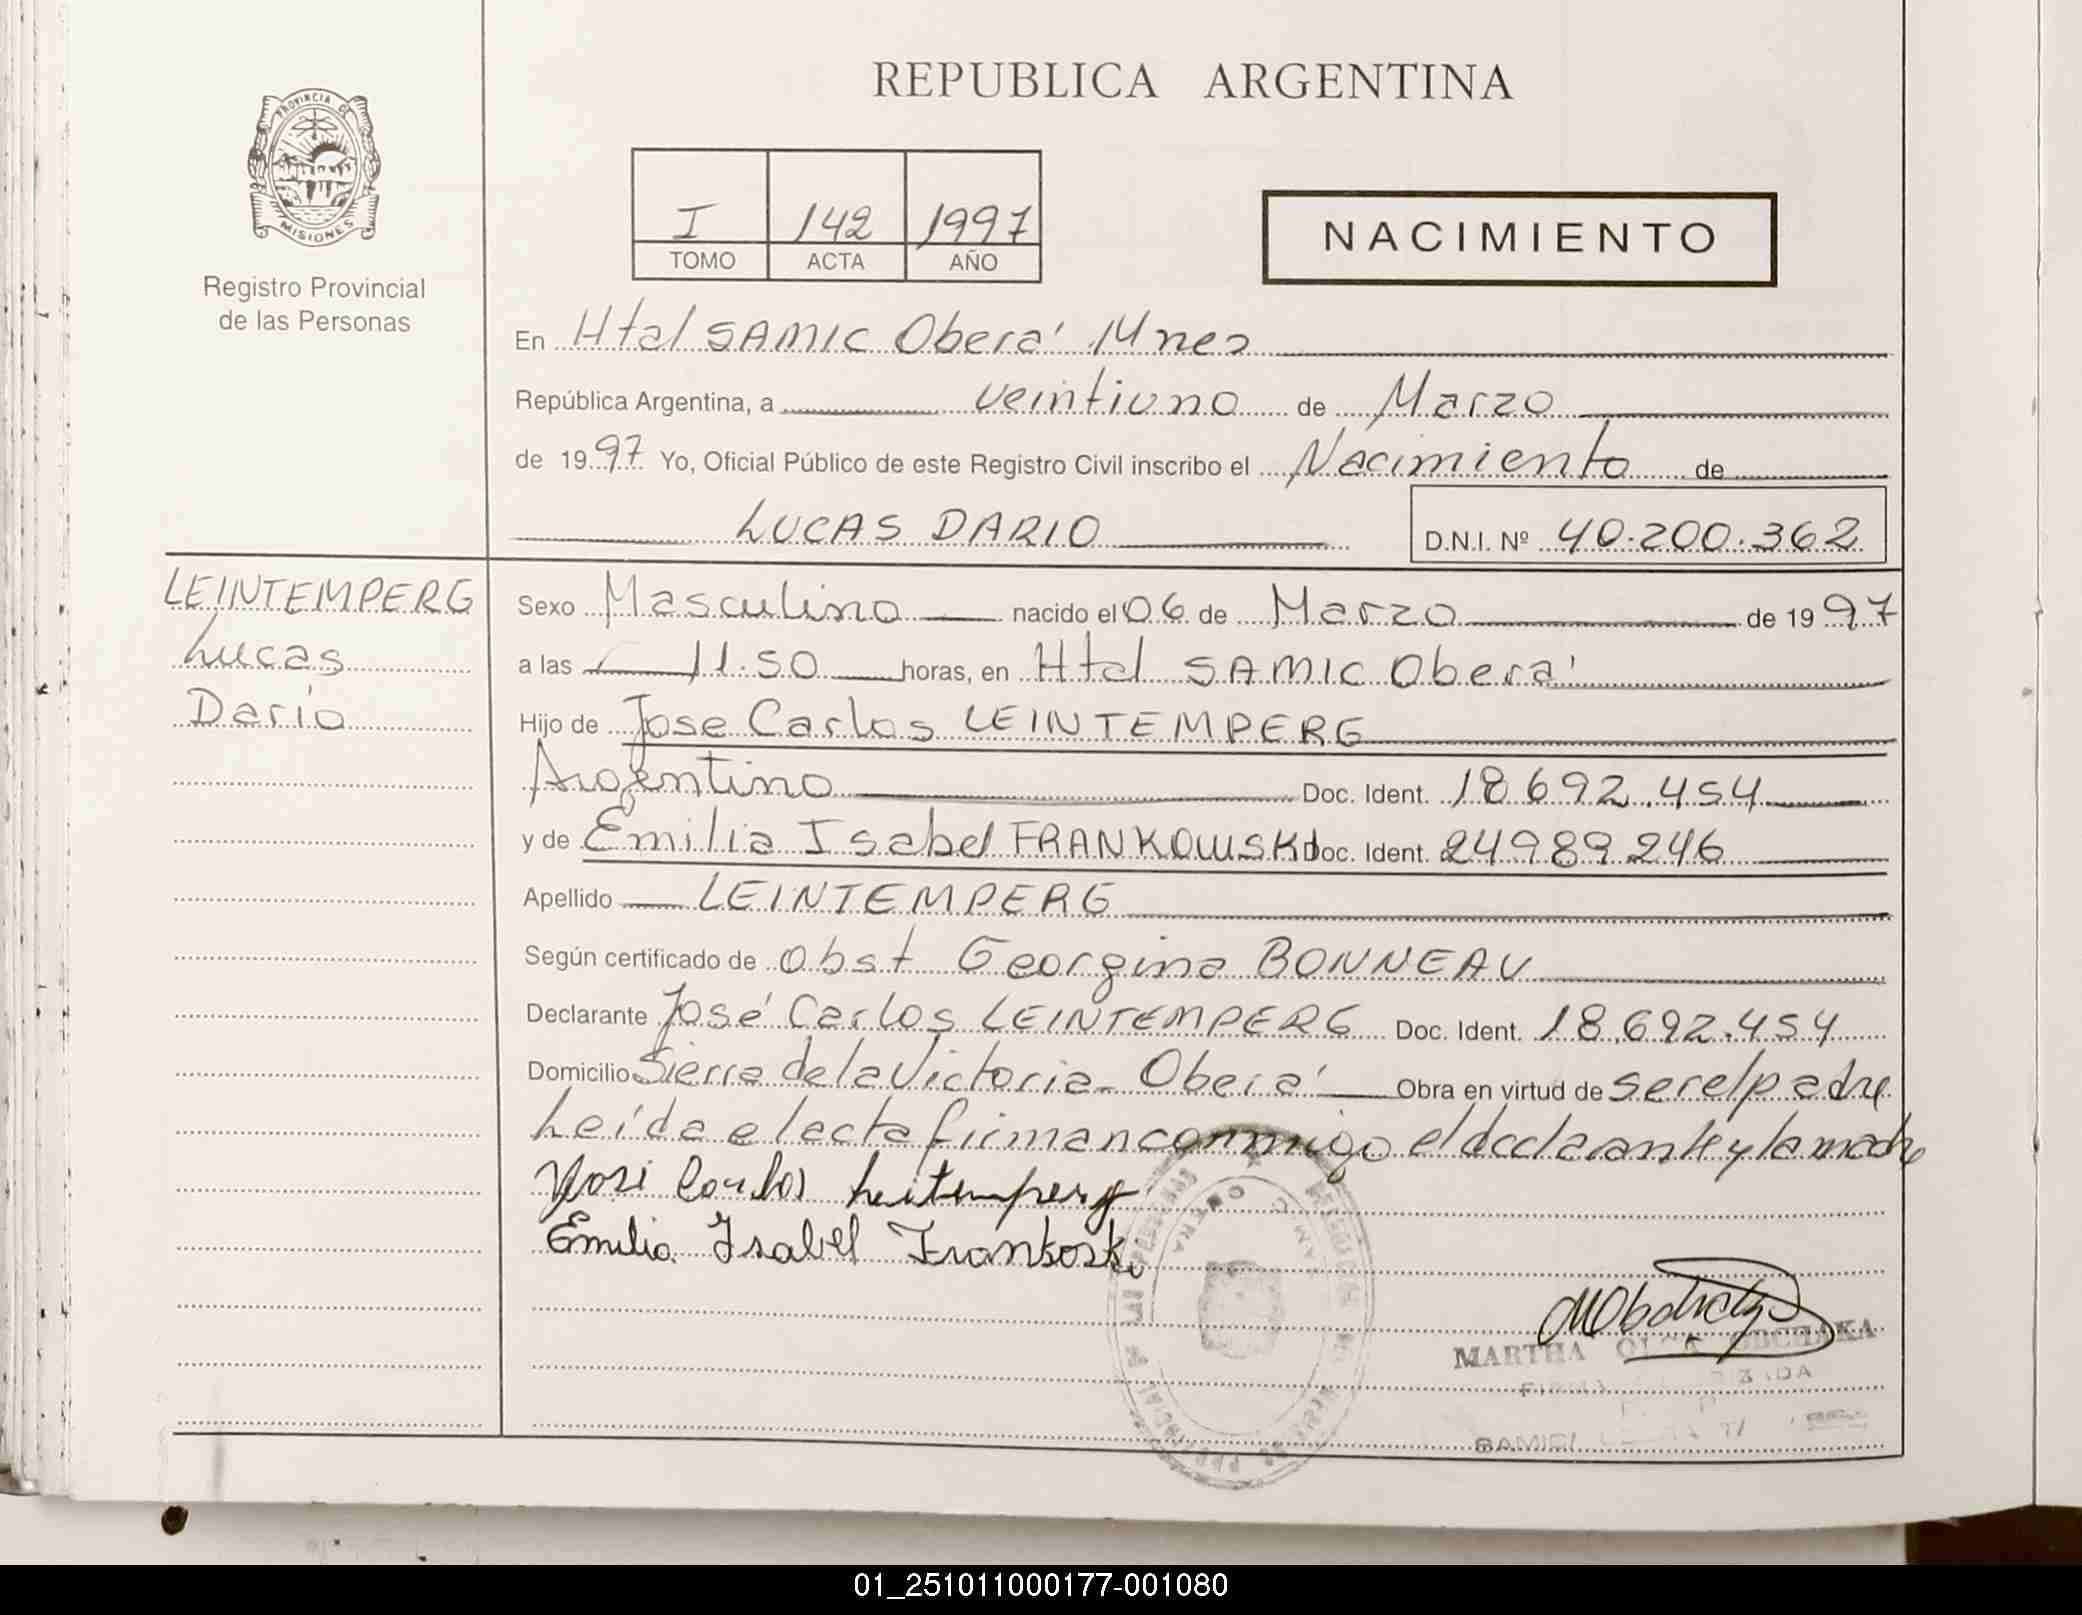 REPUBLICA ARGENTINA
PROVINCIA DE
MISIONES
Registro Provincial
de las Personas
I 142 1997
TOMO ACTA AÑO
NACIMIENTO
En Htal SAMIC Oberá Mnes
República Argentina, a veintiuno de Marzo
de 1997 Yo, Oficial Público de este Registro Civil inscribo el Nacimiento de
LUCAS DARIO D.N.I. Nº 40.200.362
LEINTEMPERG
Lucas
Dario
Sexo Masculino nacido el 06 de Marzo de 1997
a las 11.50 horas, en Htal SAMIC Oberá
Hijo de Jose Carlos LEINTEMPERG
Argentino Doc. Ident. 18.692.454
y de Emilia Isabel FRANKOWSKI Doc. Ident. 24989246
Apellido LEINTEMPERG
Según certificado de Obst Georgina BONNEAU
Declarante José Carlos LEINTEMPERG Doc. Ident. 18.692.454
Domicilio Sierra de la Victoria - Oberá Obra en virtud de ser el padre
Leída el acta firman conmigo el declarante y la madre
José Carlos Leitemperg
Emilia Isabel Frankoski
MARTHA
01_251011000177-001080